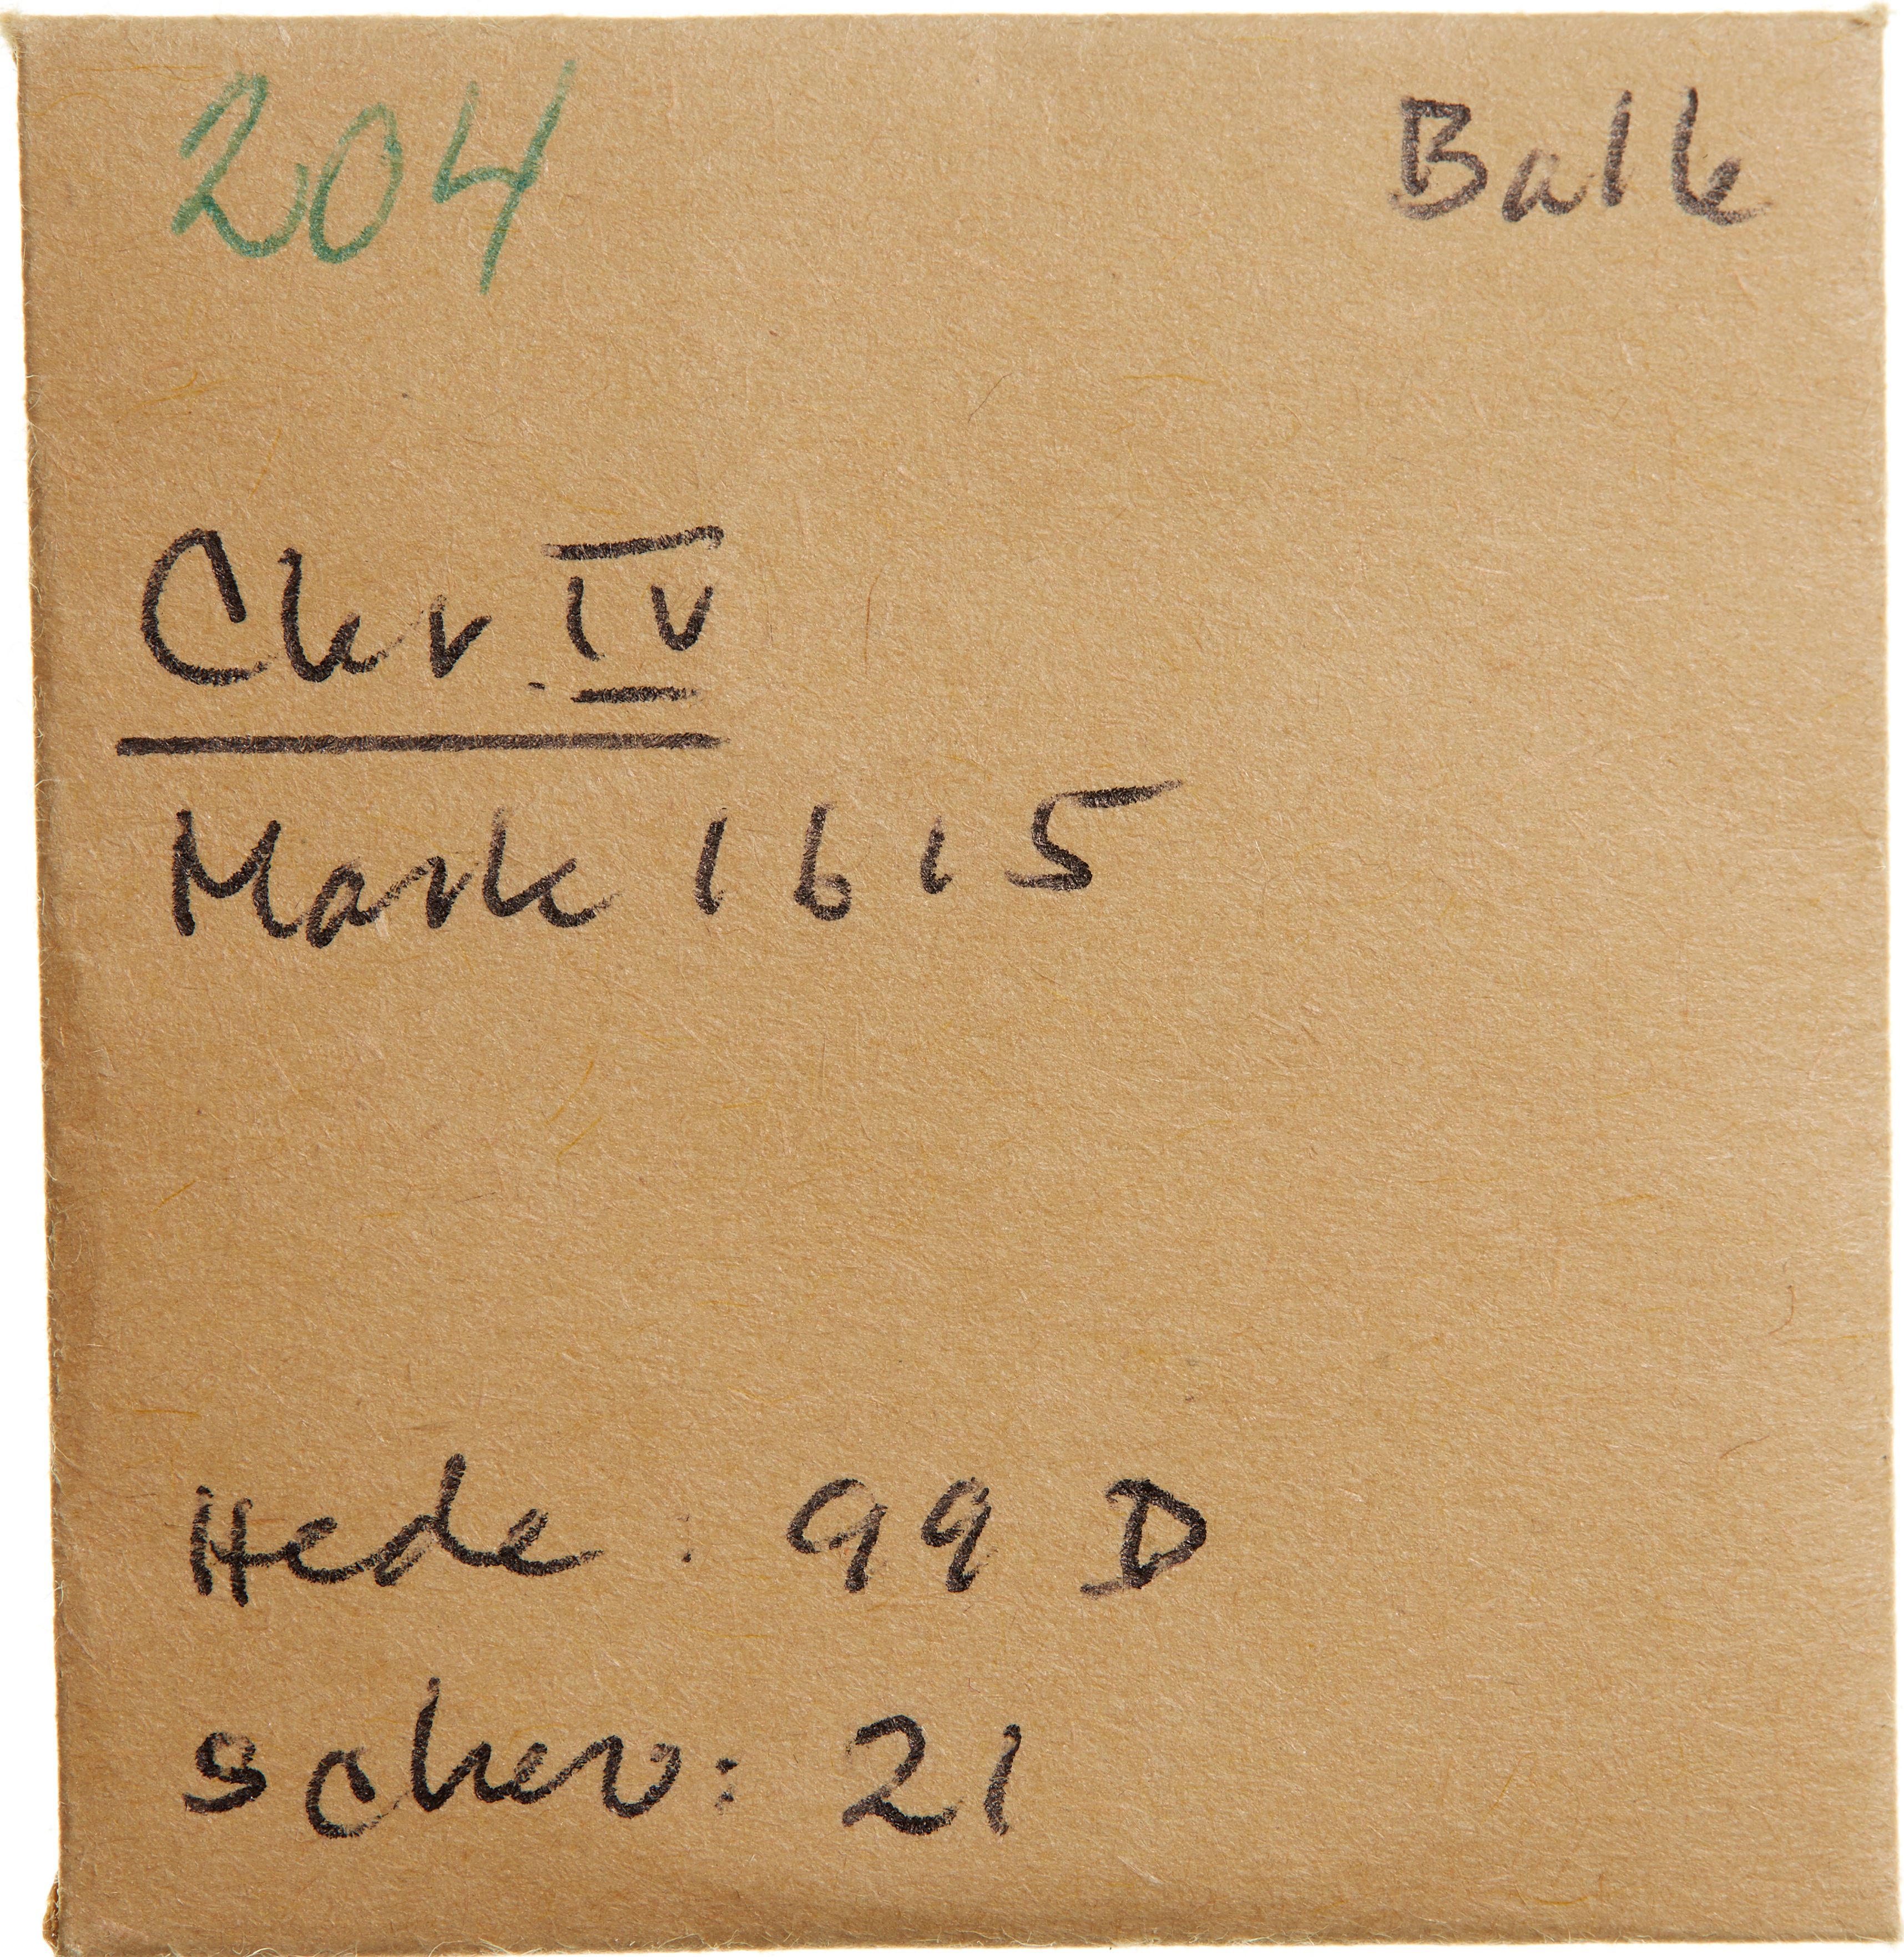 204 Balk
Chr. IV
Mark 1615
Hede: 99 D
Schou: 21